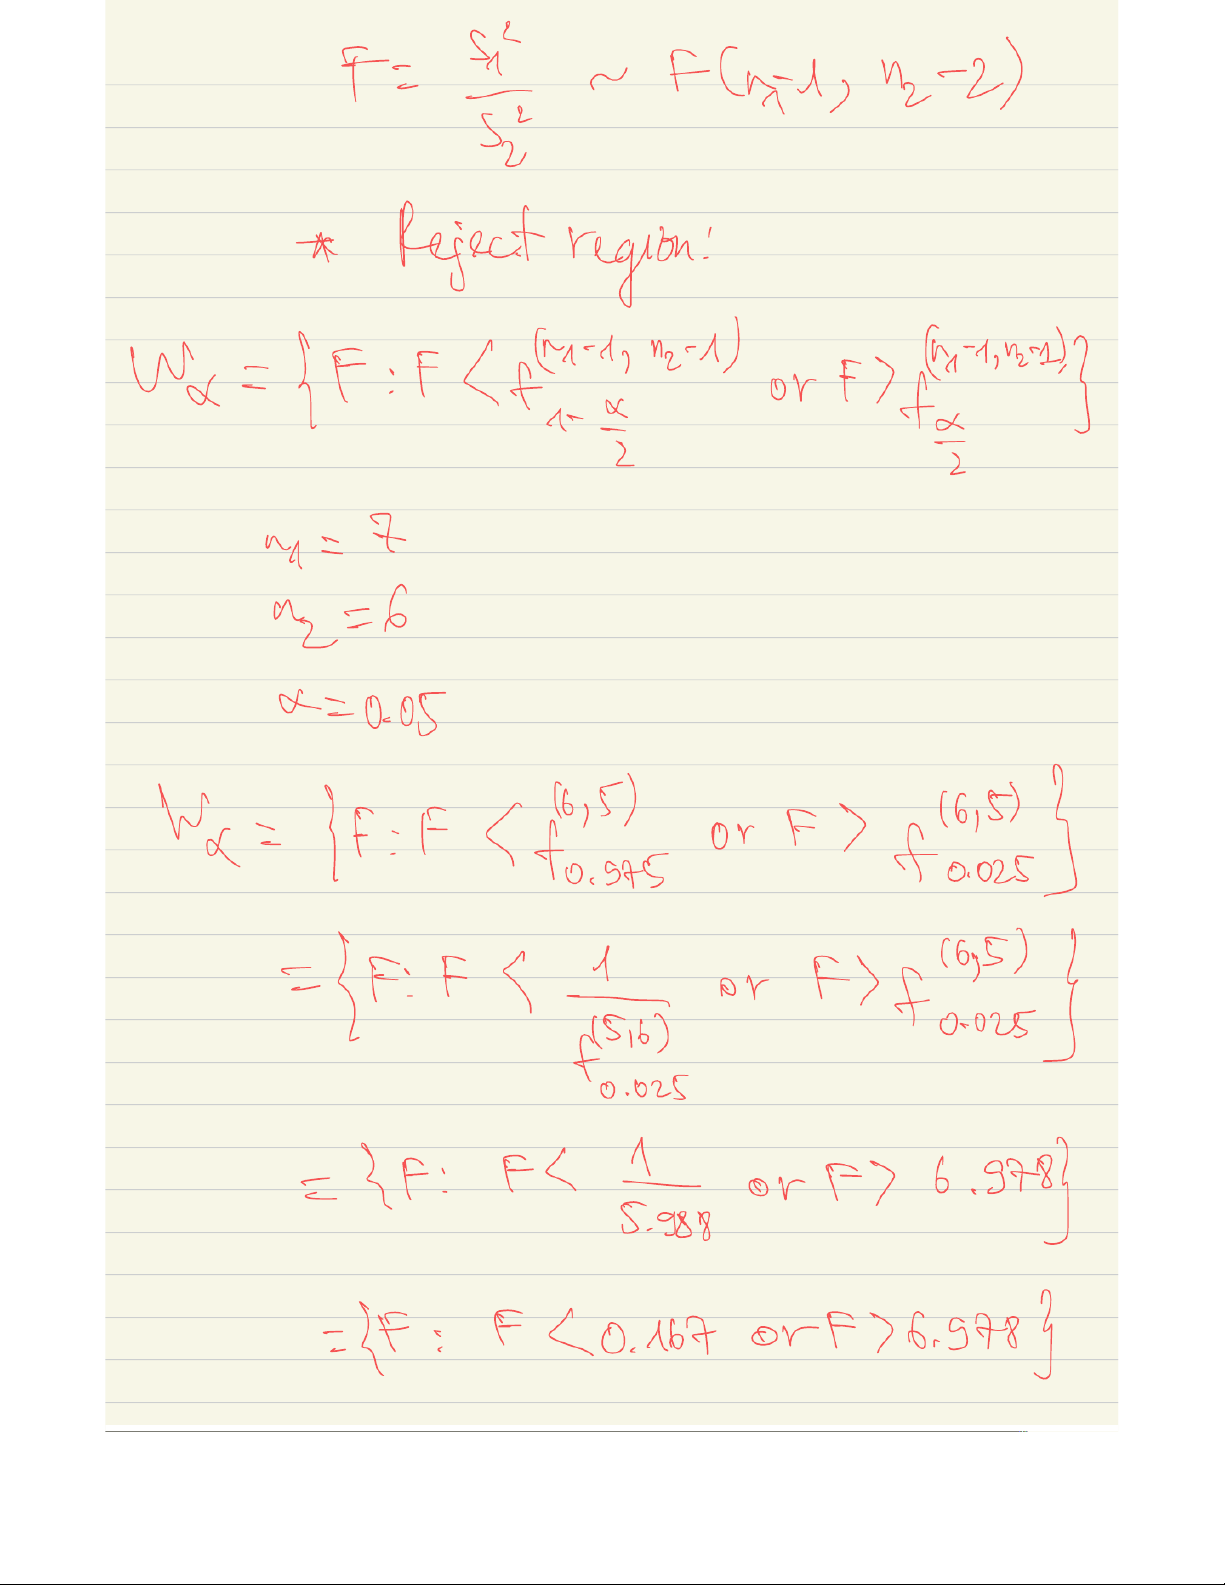 F = S₁² / S₂² ~ F(n₁-1, n₂-2)
* Reject region:
W_α = { F : F < f_{1-α/2}^{(n₁-1, n₂-1)} or F > f_{α/2}^{(n₁-1, n₂-1)} }
n₁ = 7
n₂ = 6
α = 0.05
W_α = { F : F < f_{0.975}^{(6,5)} or F > f_{0.025}^{(6,5)} }
= { F : F < 1 / f_{0.025}^{(5,6)} or F > f_{0.025}^{(6,5)} }
= { F : F < 1 / 5.988 or F > 6.978 }
= { F : F < 0.167 or F > 6.978 }